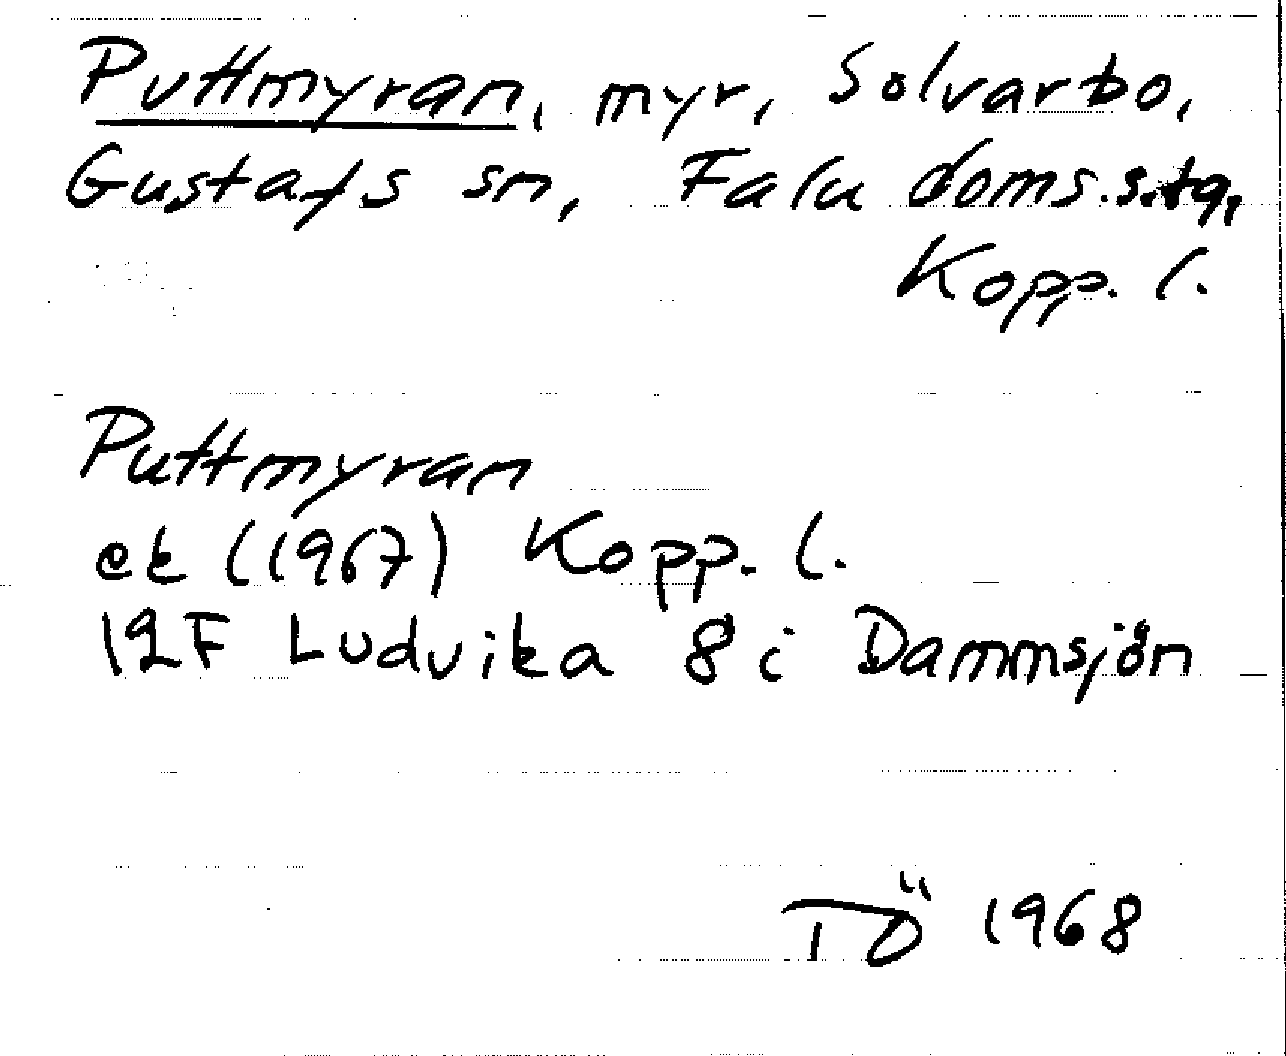 Puttmyran, myr, Solvarbo,
Gustafs sn, Falu doms.s.tg,
Kopp. l.
Puttmyran
ek (1967) Kopp. l.
12F Ludvika 8 i Dammsjön
TÖ 1968